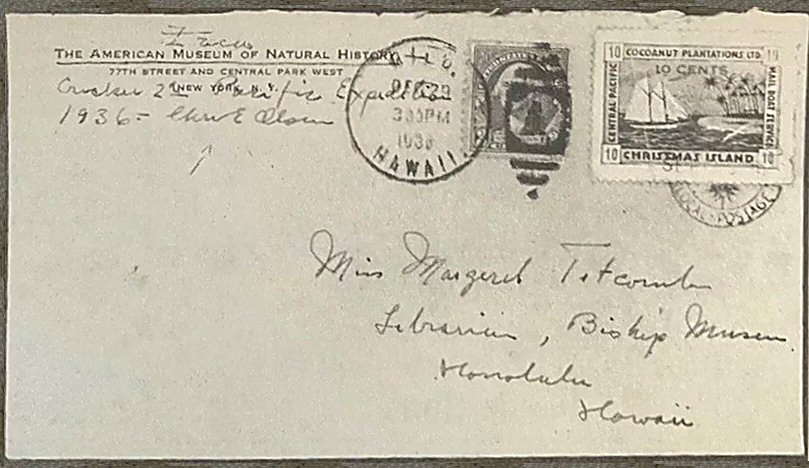 THE AMERICAN MUSEUM OF NATURAL HISTORY
77TH STREET AND CENTRAL PARK WEST
NEW YORK, N. Y.
Crocker 2nd Pacific Expedition
1936 - Chris E Olsen
HILO,
330PM
1936
HAWAII.
10 COCOANUT PLANTATIONS LTD 10
10 CENTS
CENTRAL PACIFIC
MAIL BOAT SERVICE
10 CHRISTMAS ISLAND 10
LOCAL POSTAGE
Miss Margeret Titcomb
Librarian, Biship Museum
Honolulu
Hawaii